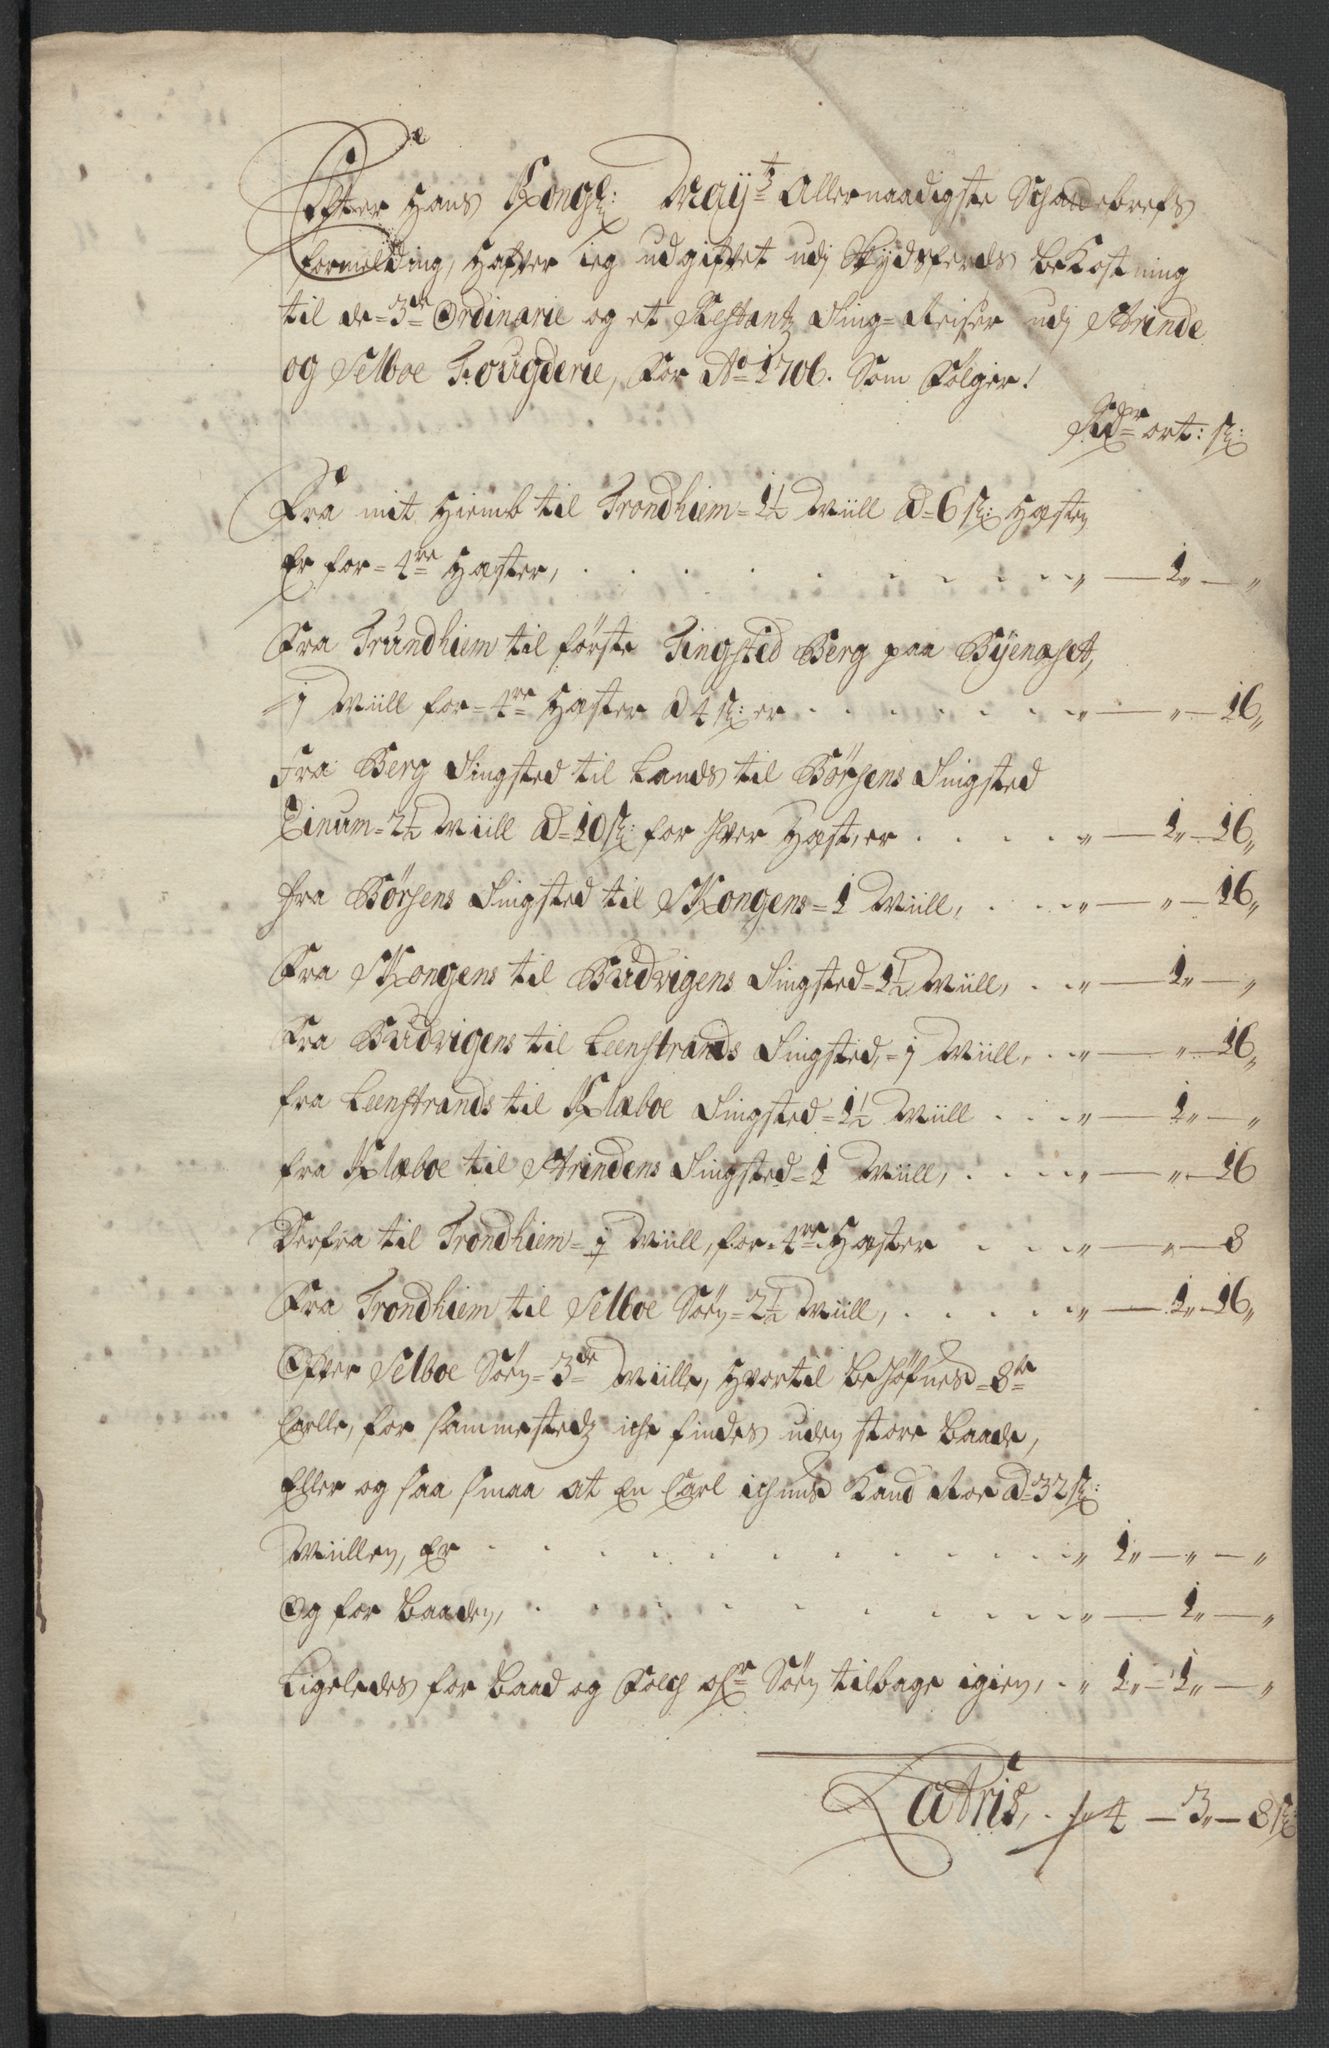 Efter Hans Kongl: May:ts Allernaadigste Schadebrefs
formelding, Hafver ieg udgifvet udj Skydsferds bekostning
til de 3de Ordinarie og et Restantz Ting-Reiser udj Strinde
og Selboe Fougderie, for Ao 1706. Som følger!
Rdr ort: s:
Fra mit Hiemb til Trondhiem = 1½ Miill a 6 s: Hesten
Er for = 4re Hæster, . . . . . . . . " — 1" — "
Fra Trundhiem til første Tingsted Berg paa Byenæset,
j Miill for = 4re Hæster a 4 s: er . . . . . . " — " — 16"
Fra Berg Tingsted til Lands til Børsens Tingsted
Einum = 2½ Miill a = 10 s: for hver Hæst, er . . . . " — 1" — 16"
fra Børsens Tingsted til Skongens = 1 Miill, . . . " — " — 16"
Fra Skongens til Budvigens Tingsted = 1½ Miill, . . " — 1" — "
Fra Budvigens til Leenstrands Tingsted, = j Miill, . . " — " — 16"
fra Leenstrands til Klæboe Tingsted = 1½ Miill . . . " — 1" — "
fra Klæboe til Strindens Tingsted = 1 Miill, . . . . " — " — 16
Derfra til Trondhiem = ½ Miill, for = 4re Hæster . . . " — " — 8
Fra Trondhiem til Selboe Søen = 2½ Miill, . . . . . " — 1" — 16"
Ofver Selboe Søen = 3de Miille, hvortil behøfves = 8te
Carlle, for sammestedz iche findes uden store Baade,
Eller og saa smaa at En Carl ichund kand Roe a = 32 s:
Miillen, Er . . . . . . . . . . . " 1" — " — "
Og for Baaden, . . . . . . . . . " — 1" — "
Ligeledes for Baad og Folch ofr Søen tilbage igien, . " 1" — 1" — "
Latris, . . 4 — 3" — 8 s: